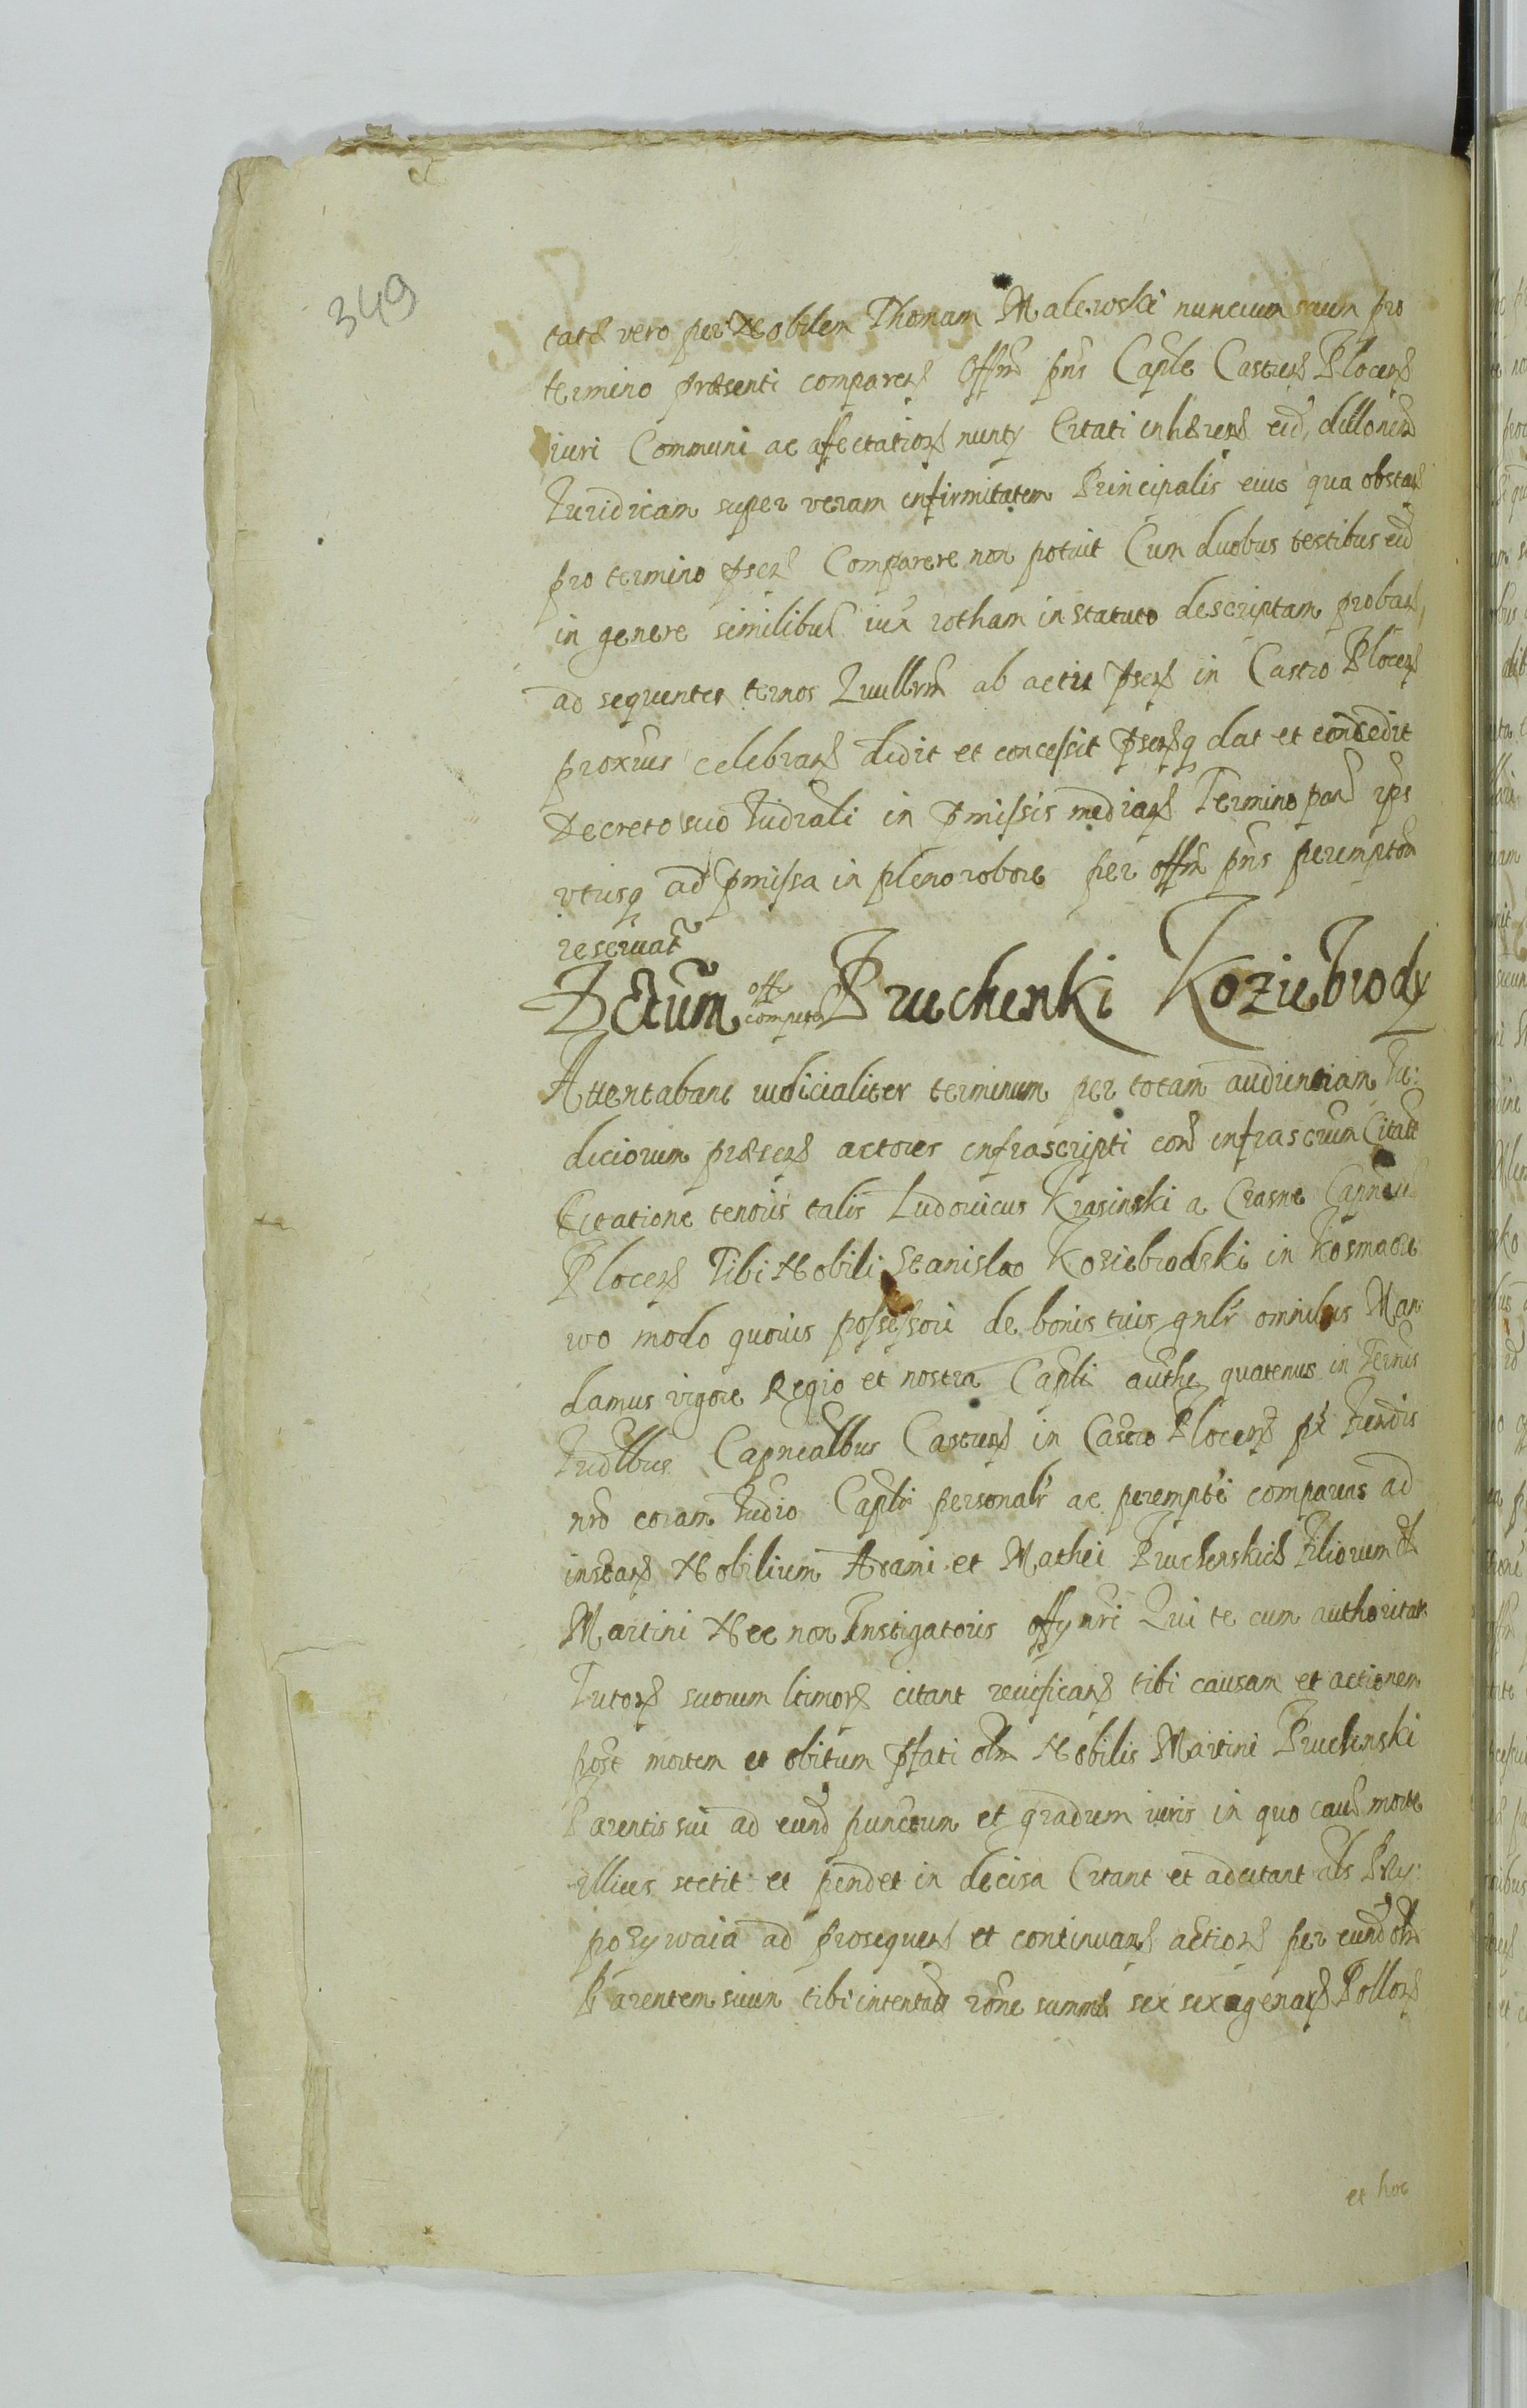 349
tate vero per Nobilem Thomam Malewski nuncium suum pro
termino præsenti comparen Offm pns Caple Castren Plocen
iuri Communi ac affectation nuntÿ Citati inhæren eid, dillonem
Iuridicam super veram infirmitatem Principalis eius qua obstan
pro termino psen Comparere non potuit Cum duobus testibus eid
in genere similibus iux rotham in statuto descriptam proban,
ad sequentes ternos ab actu psen in Castro Plocen
proxius celebran dedit et concessit psensq dat et concedit
Decreto suo Iudiali in pmissis median Termino par ips
utrisq ad pmissa in pleno robore per offm pns peremptom
reservat
Actum off Pruchenki Koziebrody
Attentabant iudicialiter terminum per totam audientiam Iu:
diciorum præsen actores infrascripti con infrascrum Citatu
Citatione tenoris talis Ludovicus Krasinski a Crasne Capneus
Plocen Tibi Nobili Stanislao Koziebrodski in Kosmaore
wo modo quovis possessori de bonis tuis gnlr omnibus Man
damus vigore Regio et nostra Capli authe quatenus in Termis
Iudllbus Capnealbus Castren in Castro Plocen px Iuendis
nro coram Iudio Capli personalr ac perempte compareas ad
instan Nobilium Adami et Mathei Pruchenskich Filiorum
Martini Nec non Instigatoris offÿ nri Qui te cum authoritate
Tutor suorum ltimor citant revisican tibi causam et actionem
post mortem et obitum pfati olm Nobilis Martini Pruchenski
Parentis sui ad eund punctum et gradum iuris in quo caus morte
illius stetit et pendet in decisa Citant et adcitant als Przy:
pozywaia ad prosequen et continuan action per eund olm
Parentem suum tibi intentat rone summæ sex sexagenar Pollon
et hoc